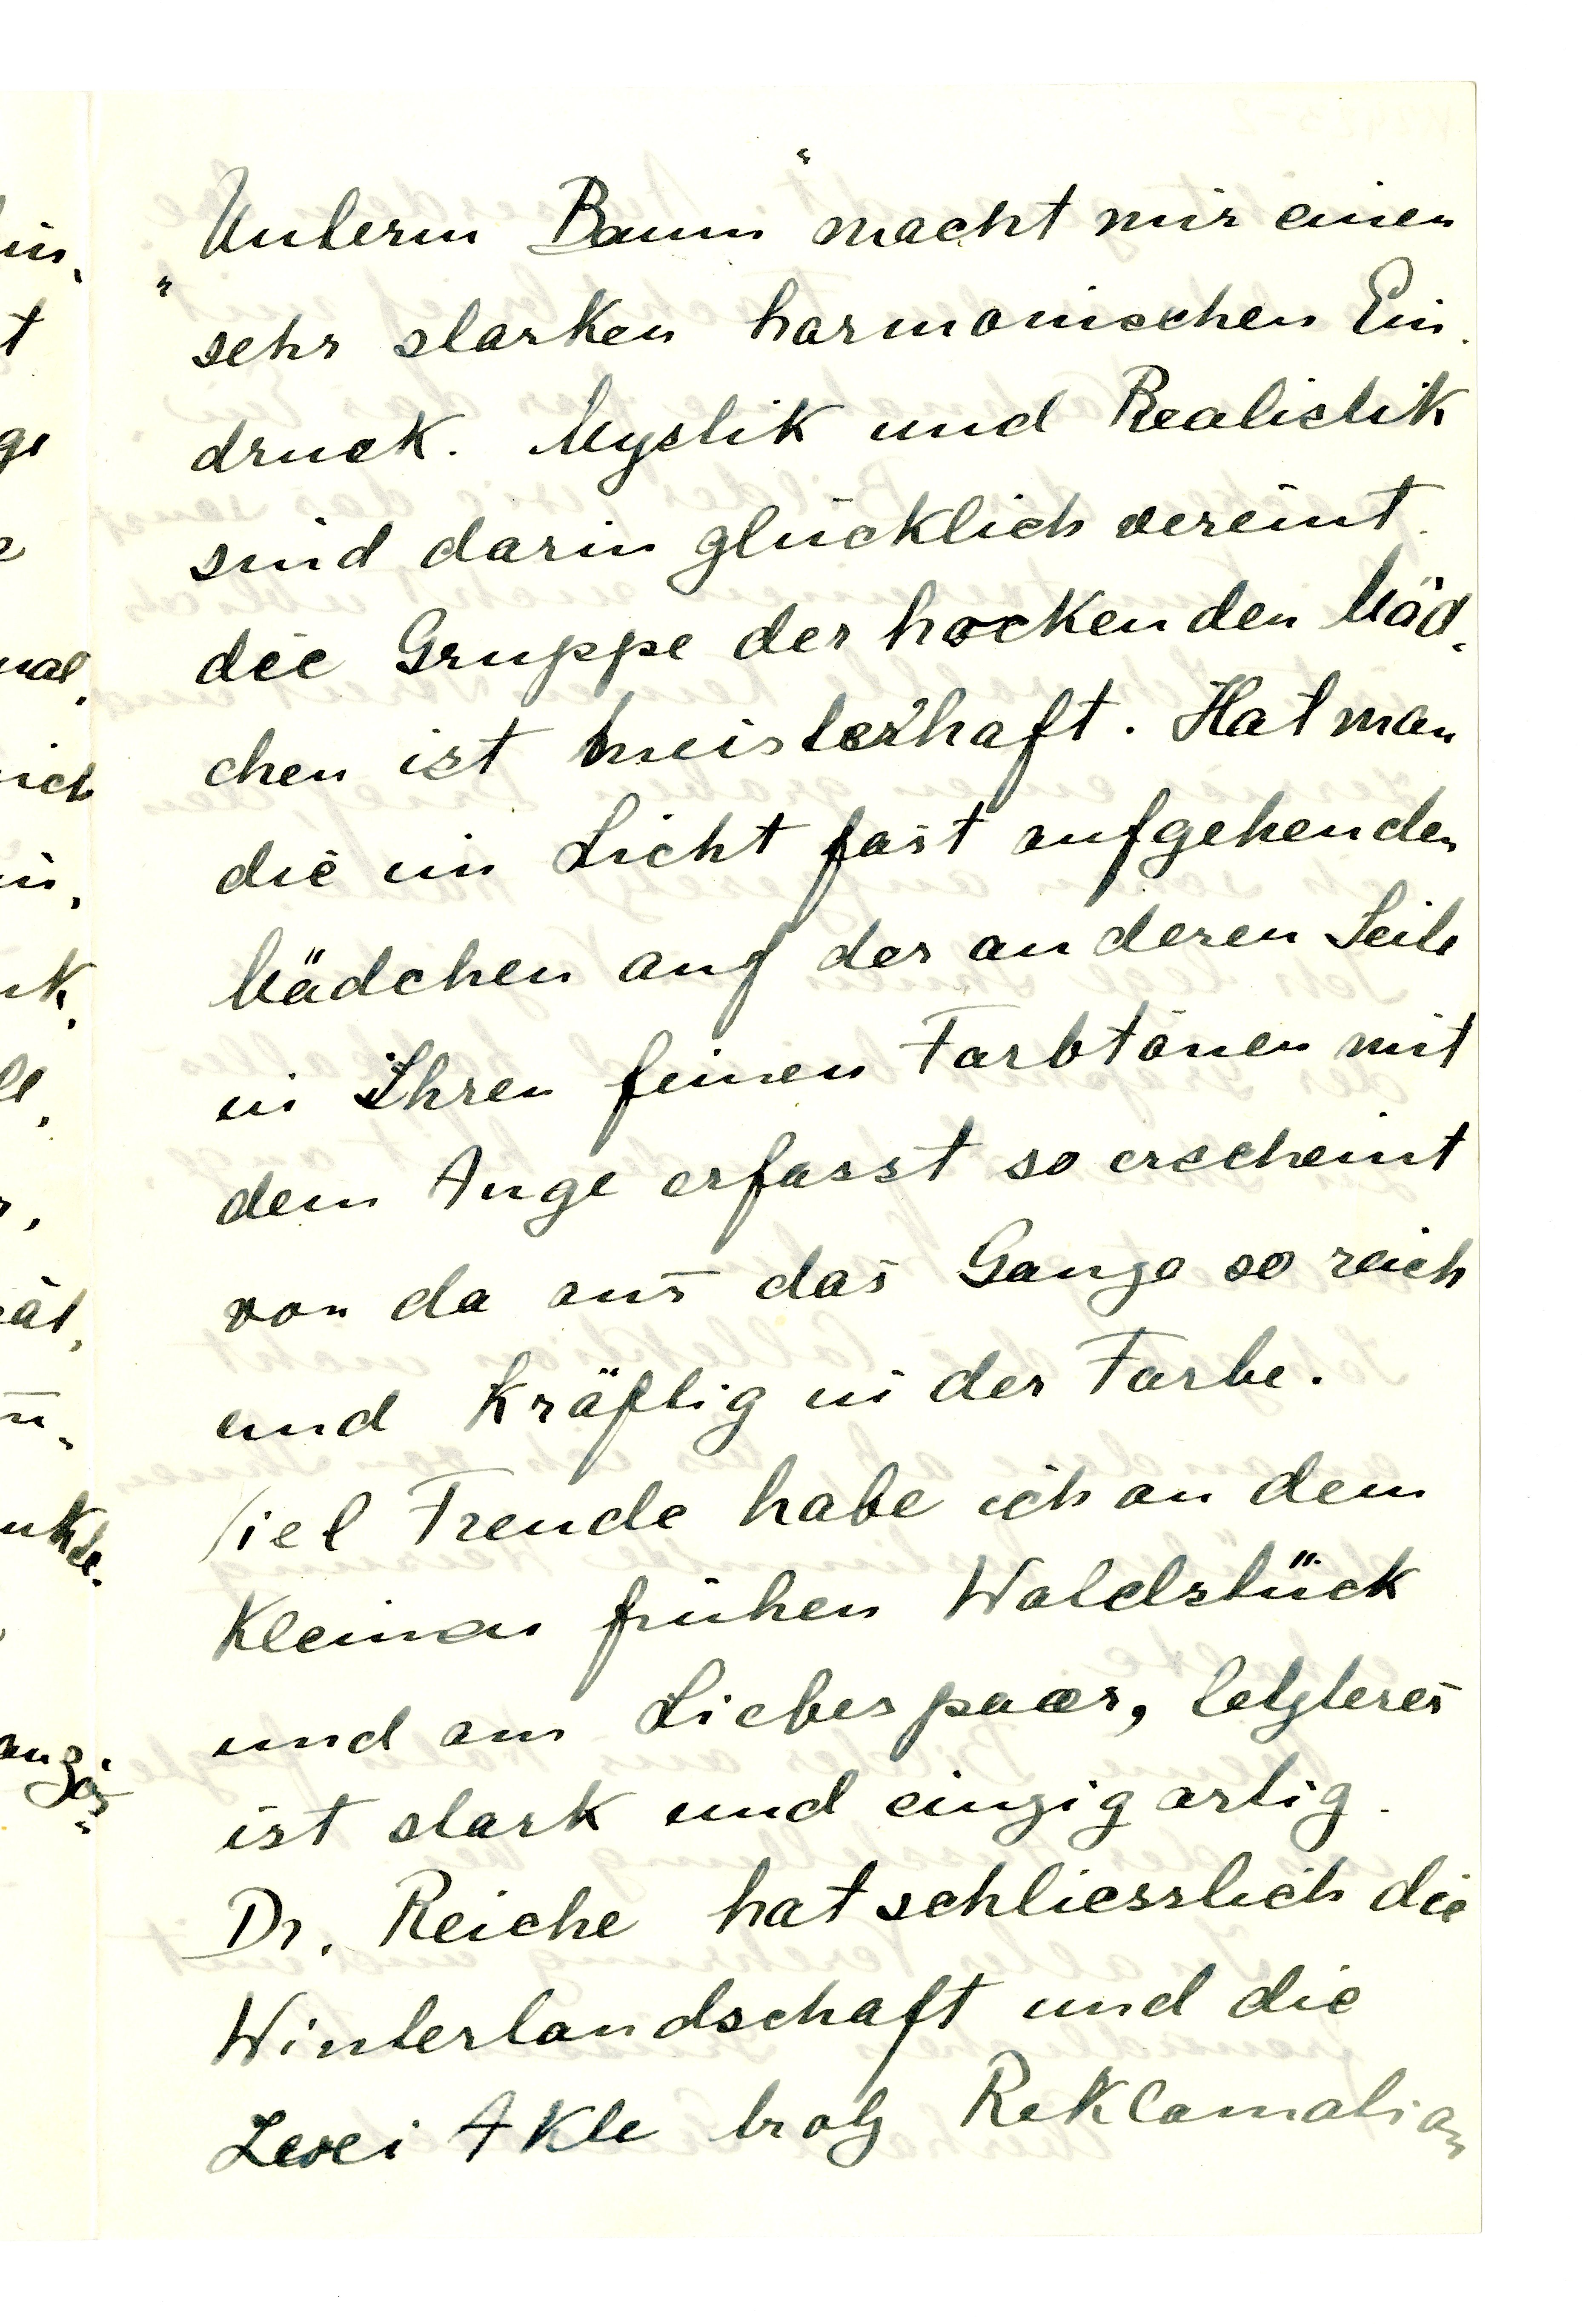 „Unterm Baum“ macht mir einen
sehr starken harmonischen Ein-
druck. Mystik und Realistik
sind darin glücklich vereint.
die Gruppe der hockenden Mäd-
chen ist meisterhaft. Hat man
die im Licht fast aufgehenden
Mädchen auf der anderen Seite
in Ihren feinen Farbtönen mit
dem Auge erfasst so erscheint
von da aus das Ganze so reich
und kräftig in der Farbe.
Viel Freude habe ich an dem
kleinen frühen Waldstück
und am Liebespaar, letzteres
ist stark und einzigartig.
Dr. Reiche hat schliesslich die
Winterlandschaft und die
Zwei Akte trotz Reklamation